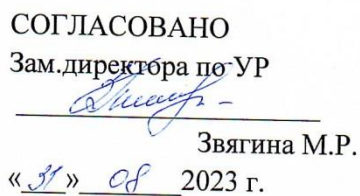 СОГЛАСОВАНО
Зам.директора по УР
Звягина М.Р.
«31» 08 2023 г.